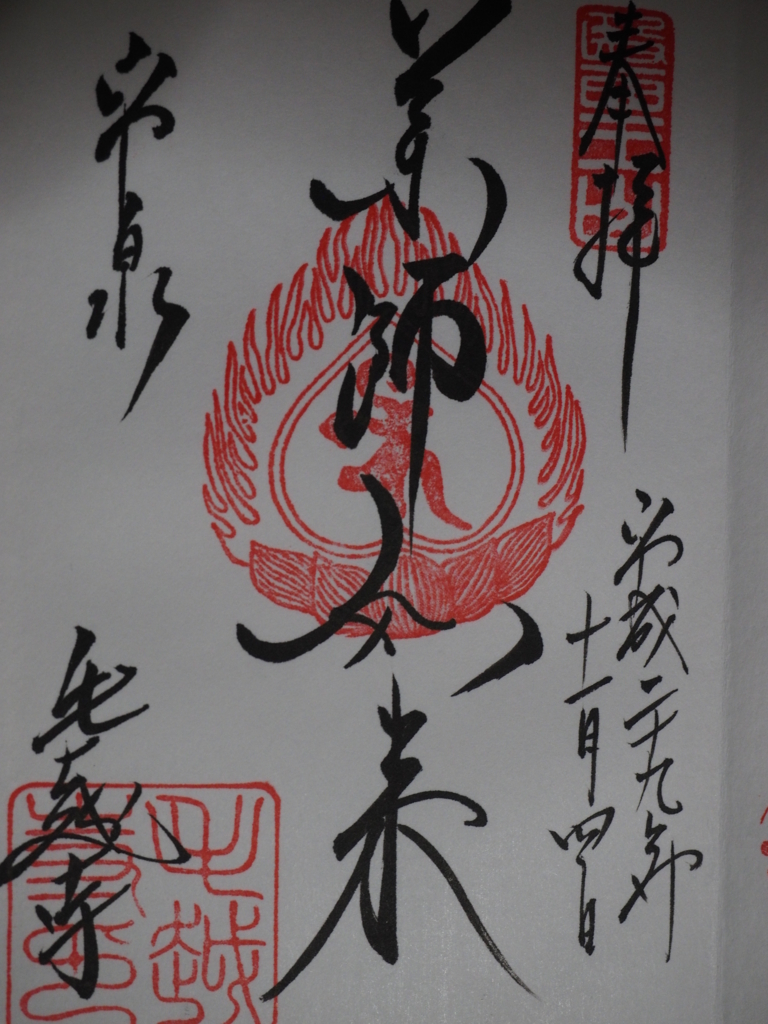 奉拝
平成二十九年
十一月四日
薬師如来
平泉
毛越寺
毛越